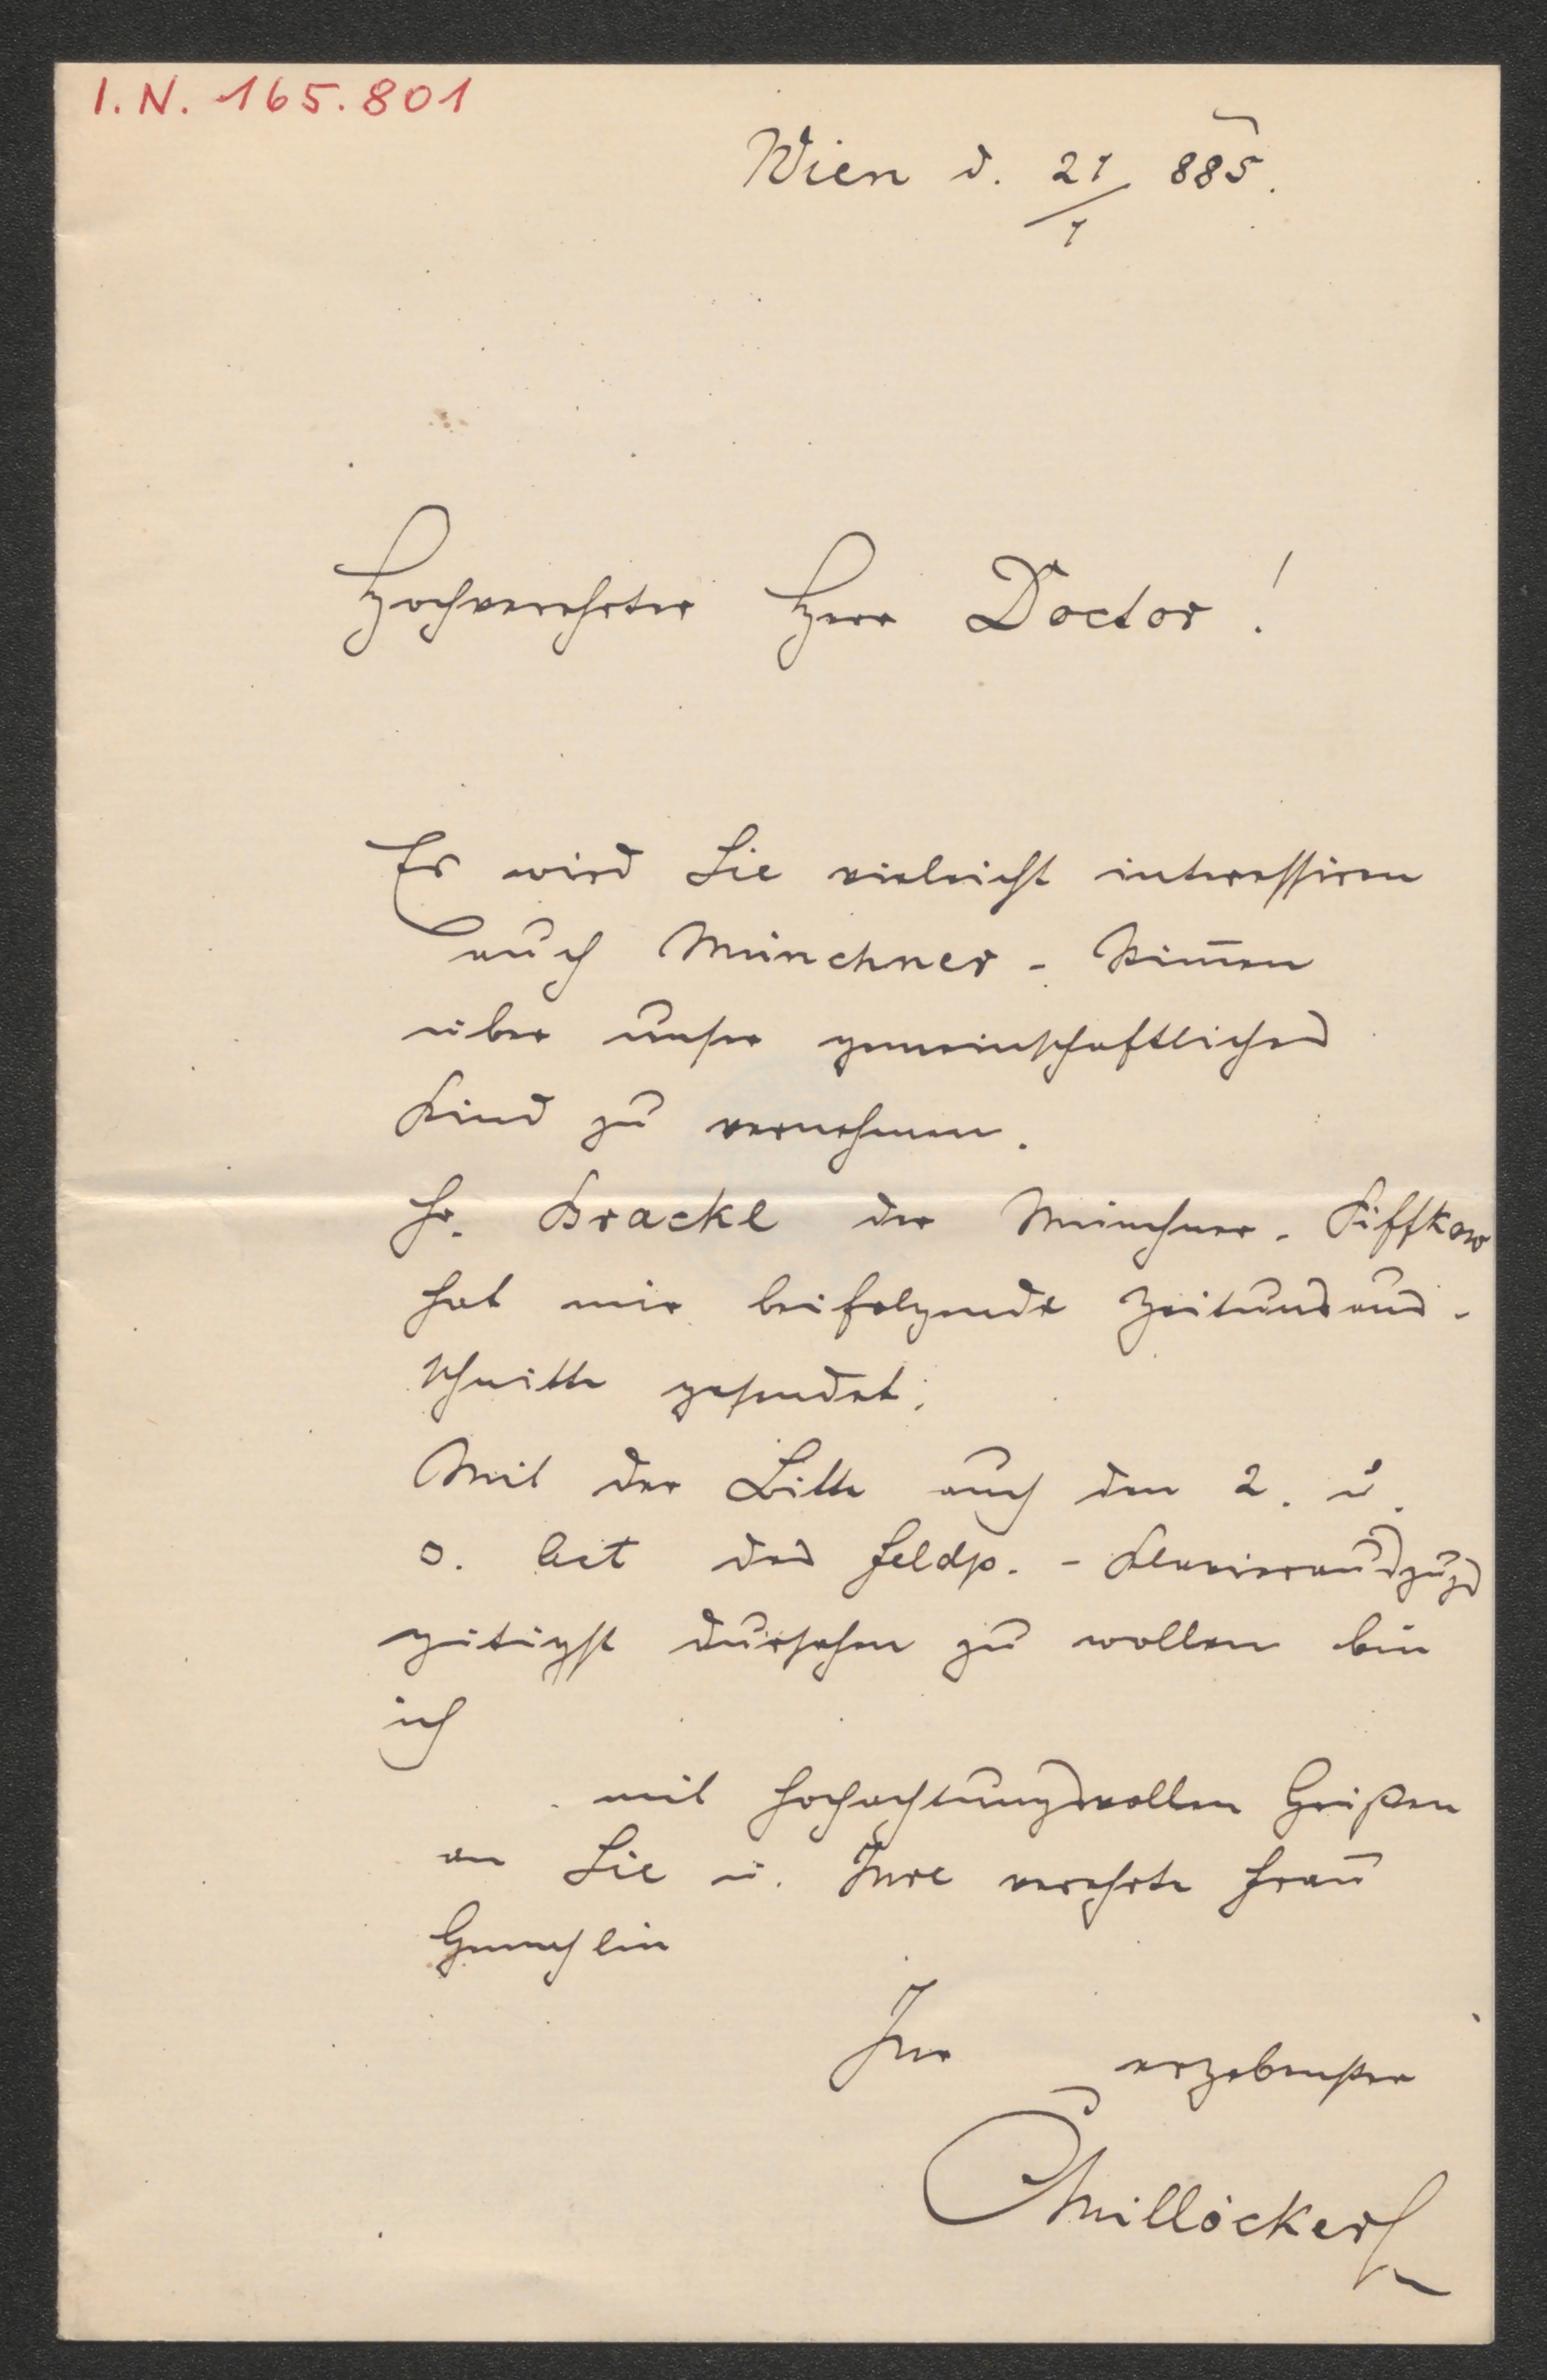 I.N. 165.801
Wien d. 21/1 885.
Hochverehrter Herr Doctor!
Es wird Sie vieleicht interessiren
auch Münchner-Stim̄en
über unser gemeinschaftliches
Kind zu vernehmen.
Hr. Brackl der Münchner-Piffkow
hat mir beifolgende Zeitungsaus-
schnitte gesendet;
Mit der Bitte auch den 2. u.
3. Act des Feldp.-Klavierauszugs
gütigst dursehen zu wollen bin
ich
mit hochachtungsvollen Grüßen
an Sie u. Ihre verehrte Frau
Gemahlin
Ihr ergebenster
CMillöcker